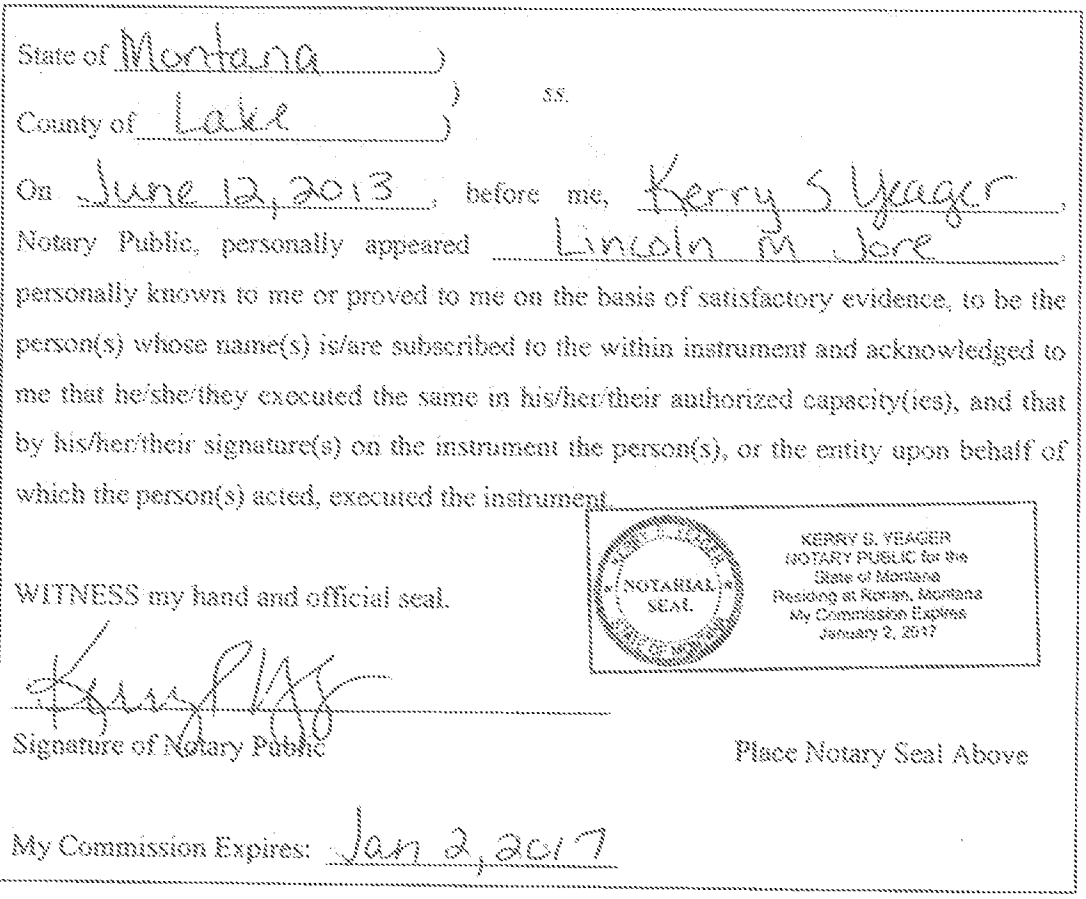 State of Montana )
) ss.
County of Lake )
On June 12, 2013, before me, Kerry S Yeager,
Notary Public, personally appeared Lincoln M Jore,
personally known to me or proved to me on the basis of satisfactory evidence, to be the
person(s) whose name(s) is/are subscribed to the within instrument and acknowledged to
me that he/she/they executed the same in his/her/their authorized capacity(ies), and that
by his/her/their signature(s) on the instrument the person(s), or the entity upon behalf of
which the person(s) acted, executed the instrument.
KERRY S. YEAGER
NOTARIAL
SEAL
STATE OF MONTANA
KERRY S. YEAGER
NOTARY PUBLIC for the
State of Montana
Residing at Ronan, Montana
My Commission Expires
January 2, 2017
WITNESS my hand and official seal.
Signature of Notary Public
Place Notary Seal Above
My Commission Expires: Jan 2, 2017